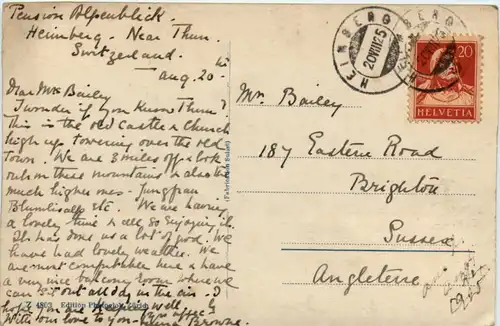 Pension Alpenblick.
Heimberg. Near Thun.
Switzerland.
Aug. 20
Dear Mr Bailey
I wonder if you know Thun?
This is the old Castle & Church
high up towering over the old
Town. We are 3 miles off & look
out on these mountains & also the
much higher ones - Jungfrau
Blumlisalp etc. We are having
a lovely time & all so enjoying it.
It has done us a lot of good. We
have had lovely weather. We
are most comfortable here & have
a very nice balcony room where we
can sit out all day in the air. I
hope you are keeping well
With our love to you - Browne.
4803 Edition Zürich
(Fabrication Suisse)
HEIMBERG
20.VIII.25
HEIMBERG
20
HELVETIA
Mr. Bailey
187 Eastern Road
Brighton
Sussex.
Angleterre